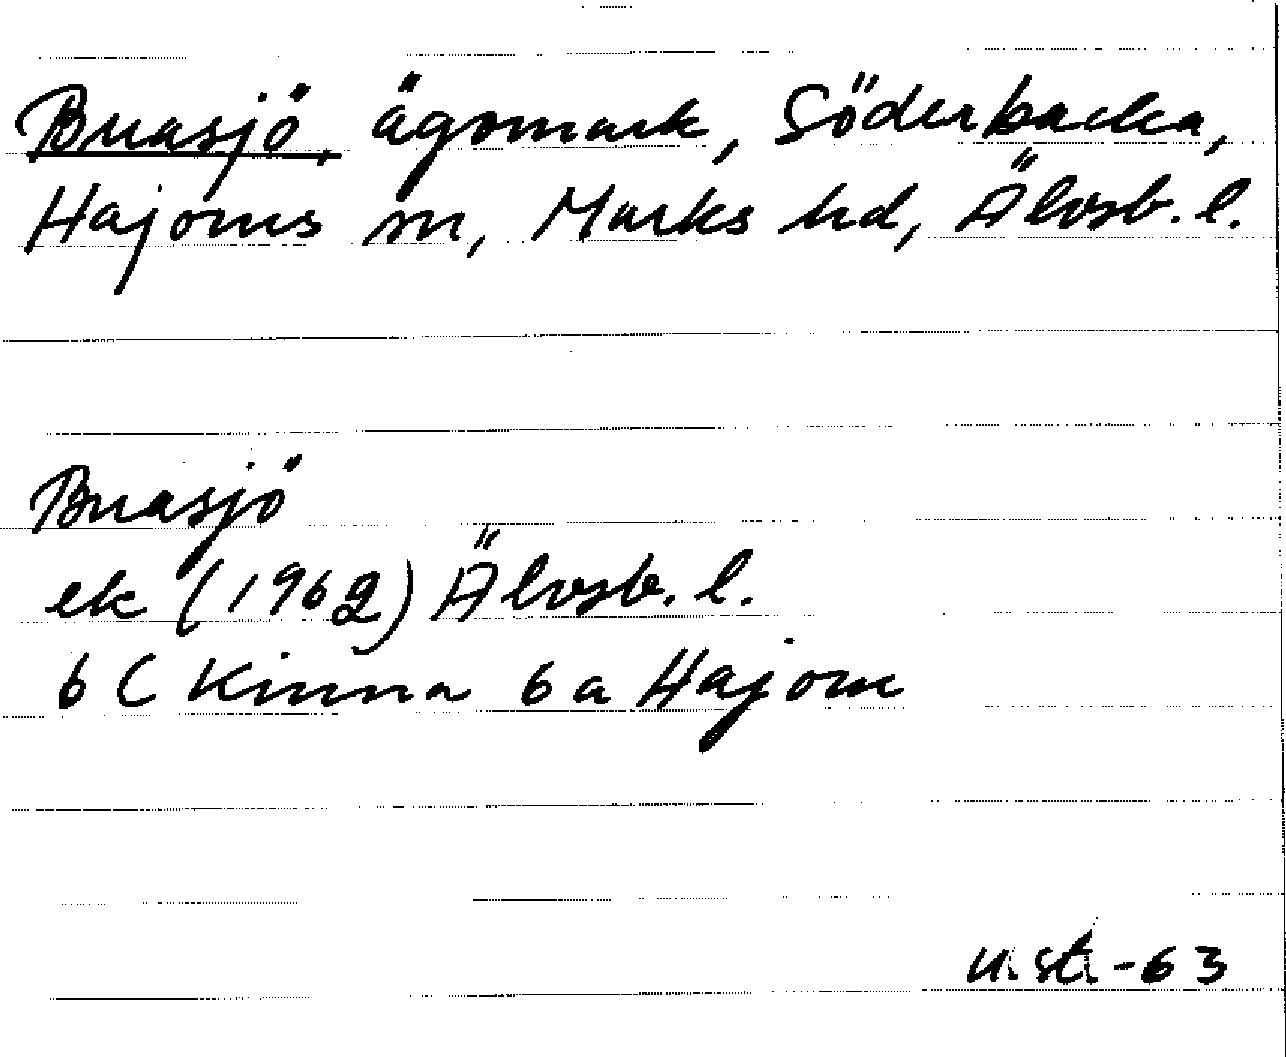 Buasjö, ägomark, Söderbacka,
Hajoms sn, Marks hd, Älvsb. l.
Buasjö
ek (1962) Älvsb. l.
6 C Kinna 6 a Hajom
u. st. -63